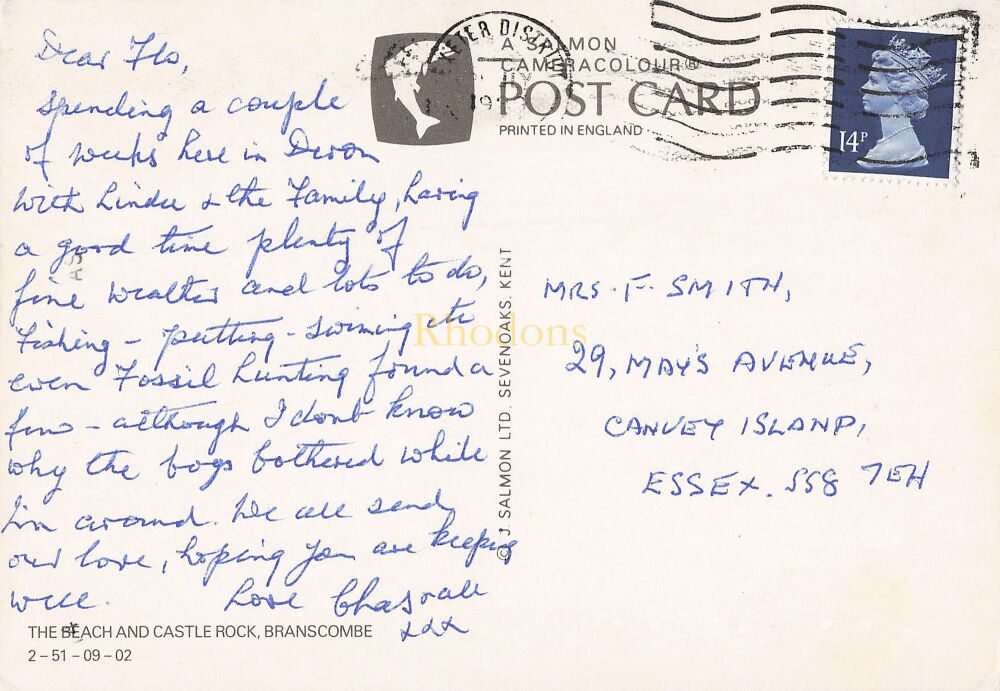 Dear Flo,
spending a couple
of weeks here in Devon
with Linda & the Family, having
a good time plenty of
fine weather and lots to do,
Fishing - putting - swiming etc
even Fossil hunting found a
few - although I dont know
why the boys bothered while
I'm around. We all send
our love, hoping you are keeping
well.
Love Chas
xxx
THE BEACH AND CASTLE ROCK, BRANSCOMBE
2 – 51 – 09 – 02
EXETER DISTRICT
A SALMON
CAMERACOLOUR®
POST CARD
PRINTED IN ENGLAND
14P
© J. SALMON LTD. SEVENOAKS. KENT
Rhodons
MRS. F. SMITH,
29, MAY'S AVENUE,
CANVEY ISLAND,
ESSEX. SS8 7EH